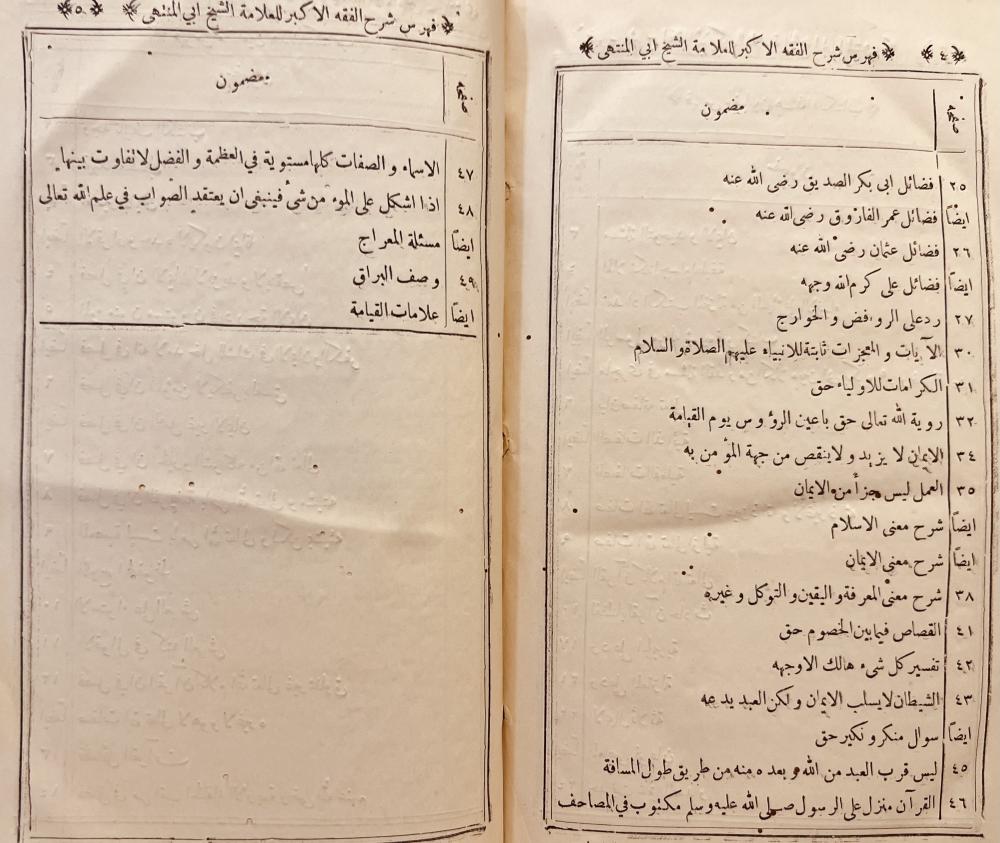 ﴿٤﴾ ﴿ فهرس شرح الفقه الاكبر للعلامة الشيخ ابي المنتهى ﴾
صحيفة مضمون
٢٥ فضائل ابى بكر الصديق رضى الله عنه
ايضاً فضائل عمر الفاروق رضى الله عنه
٢٦ فضائل عثمان رضى الله عنه
ايضاً فضائل على كرم الله وجهه
٢٧ رد على الروافض والخوارج
٣٠ الآيات والمعجزات ثابتة للانبياء عليهم الصلاة والسلام
٣١ الكرامات للاولياء حق
٣٢ روية الله تعالى حق باعين الرؤوس يوم القيامة
٣٤ الايمان لا يزيد ولا ينقص من جهة المؤمن به
٣٥ العمل ليس جزأ من الايمان
ايضاً شرح معنى الاسلام
ايضاً شرح معنى الايمان
٣٨ شرح معنى المعرفة واليقين والتوكل وغيره
٤١ القصاص فيما بين الخصوم حق
٤٢ تفسير كل شىء هالك الا وجهه
٤٣ الشيطان لا يسلب الايمان ولكن العبد يدعه
ايضاً سوال منكر ونكير حق
٤٥ ليس قرب العبد من الله وبعده منه من طريق طول المسافة
٤٦ القرآن منزل على الرسول صلى الله عليه وسلم مكتوب في المصاحف
﴿ فهرس شرح الفقه الاكبر للعلامة الشيخ ابي المنتهى ﴾ ﴿٥﴾
صحيفة مضمون
٤٧ الاسماء والصفات كلها مستوية في العظمة والفضل لا تفاوت بينها
٤٨ اذا اشكل على المؤمن شئ فينبغى ان يعتقد الصواب في علم الله تعالى
ايضاً مسئلة المعراج
٤٩ وصف البراق
ايضاً علامات القيامة